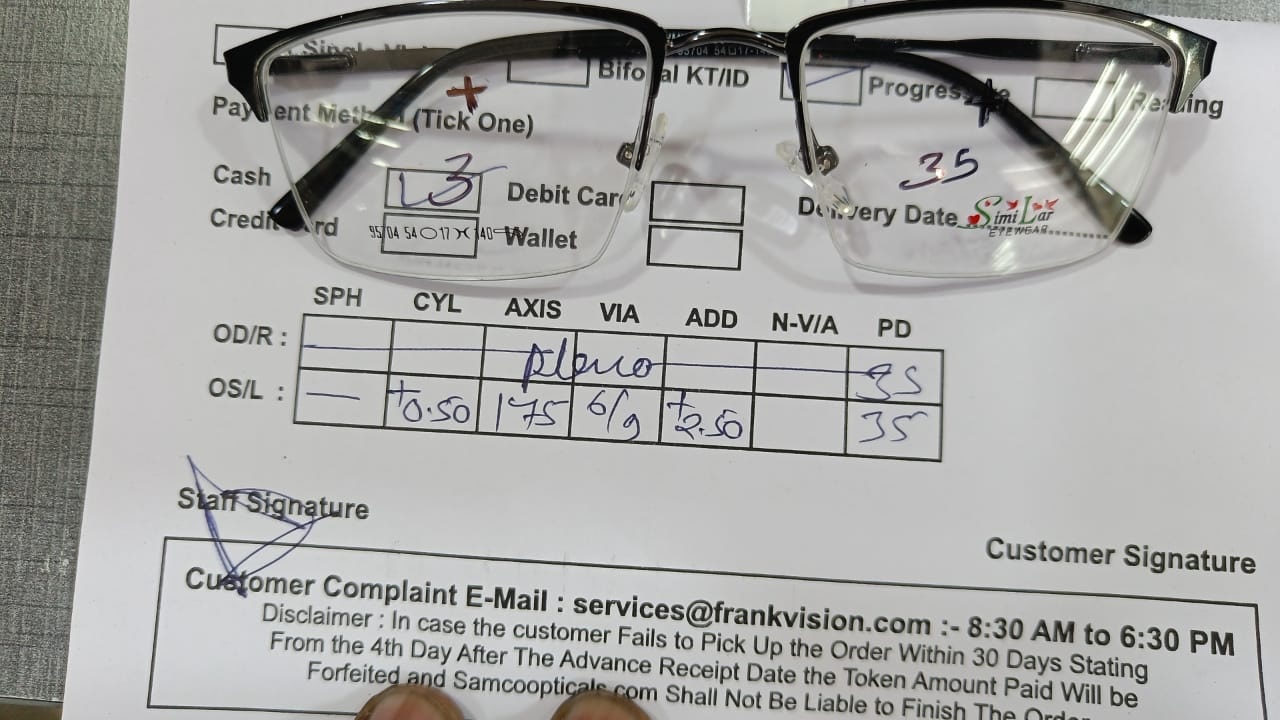 Single
Bifocal KT/ID
Progressive
Reading
Payment Method (Tick One)
Cash
3
Debit Card
35
Delivery Date
SimiLar
EYEWEAR
Credit Card
9504 54 17 140
Wallet
SPH CYL AXIS VIA ADD N-V/A PD
OD/R : Plano 35
OS/L : — +0.50 175 6/9 +2.50 35
Staff Signature
Customer Signature
Customer Complaint E-Mail : services@frankvision.com :- 8:30 AM to 6:30 PM
Disclaimer : In case the customer Fails to Pick Up the Order Within 30 Days Stating
From the 4th Day After The Advance Receipt Date the Token Amount Paid Will be
Forfeited and Samcoopticals.com Shall Not Be Liable to Finish The Order